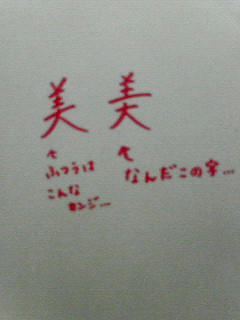 美 美
↑ ふつうは
こんな
カンジ…
↑ なんだこの字…